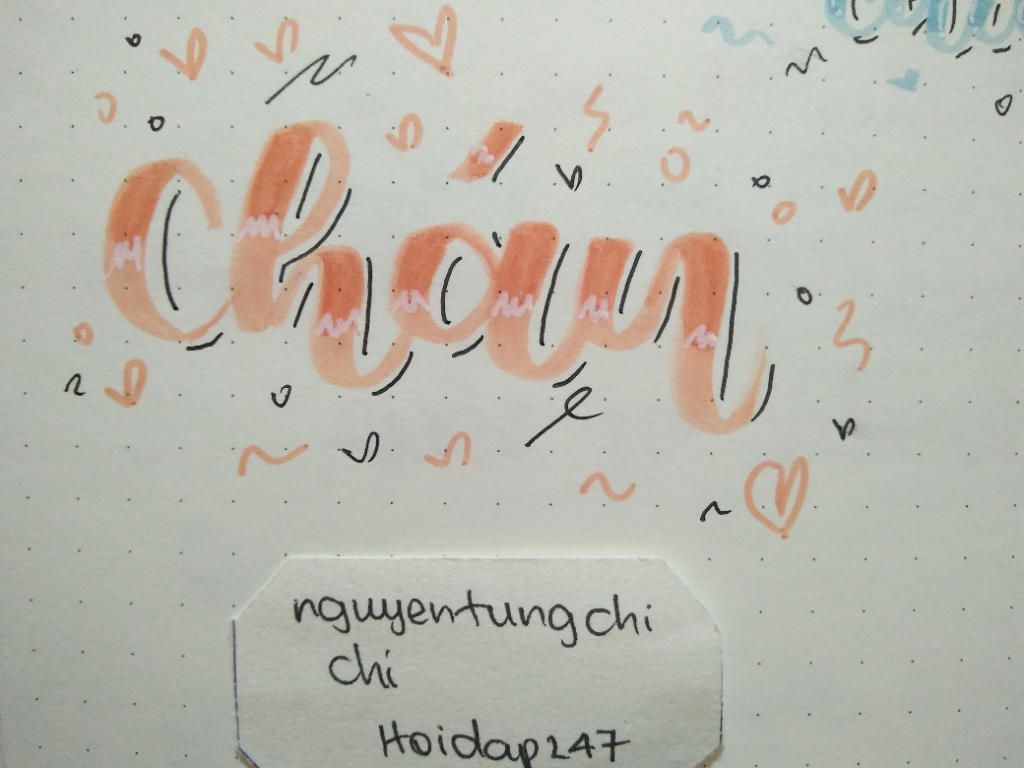 Chán
nguyentungchi
chi
Hoidap247